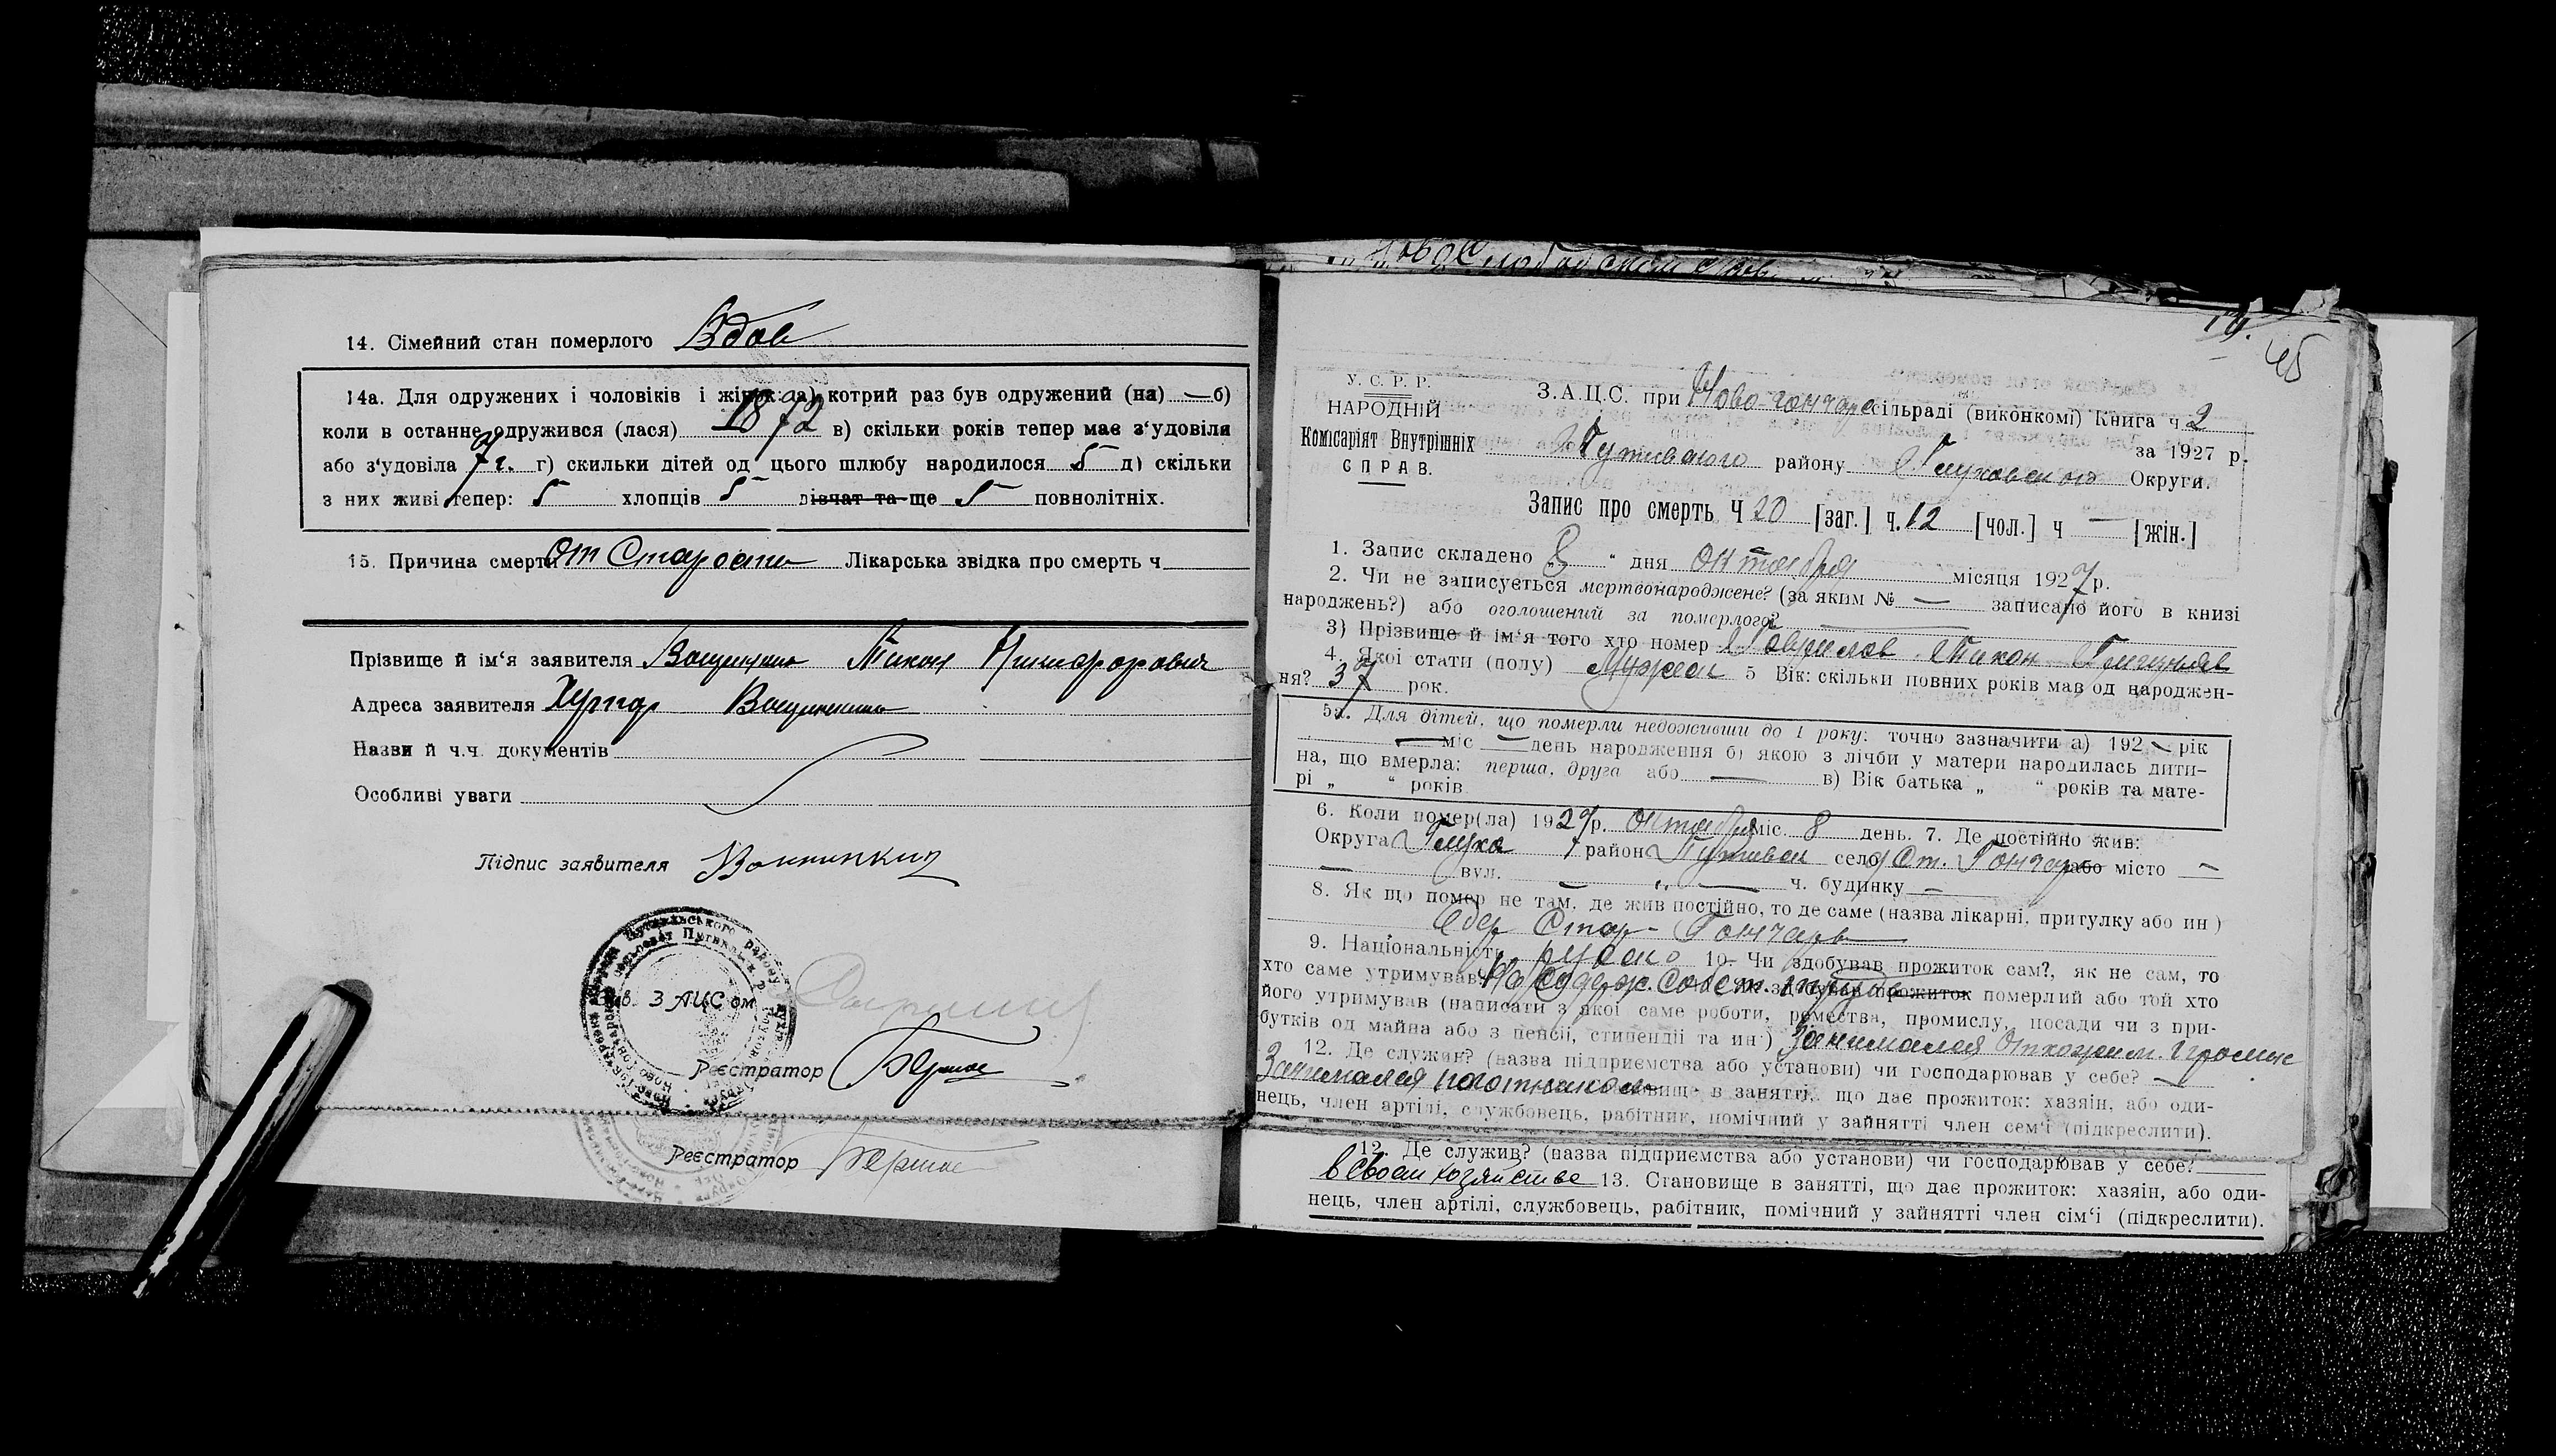 14. Сімейний стан померлого Вдов
14а. Для одружених і чоловіків і жінок: а) котрий раз був одружений (на) — б)
коли в останнє одружився (лася) 1872 в) скільки років тепер має з‘удовіля
або з‘удовіла 7 г. г) скильки дітей од цього шлюбу народилося 5 д) скільки
з них живі тепер: 5 хлопців 5 дівчат та ще 5 повнолітніх.
15. Причина смерти От Старости Лікарська звідка про смерть ч
Прізвище й ім‘я заявителя Тихон Никифорович
Адреса заявителя Хутор
Назви й ч.ч. документів
Особливі уваги
Підпис заявителя
Зав. ЗАЦСом
Реєстратор
Реєстратор
19.
45
У. С. Р. Р.
НАРОДНІЙ
Комісаріят Внутрішніх
СПРАВ.
З.А.Ц.С. при Ново-Гончар сільраді (виконкомі) Книга ч 2
Путивльского району Глуховского Округи. за 1927 р.
Запис про смерть Ч 20 [заг.] ч. 12 [чол.] ч — [жін.]
1. Запис складено 8 “ дня Октября місяця 1927 р.
2. Чи не записується мертвонароджене? (за яким № — записано його в книзі
народжень?) або оголошений за померлого? —
3) Прізвище й ім‘я того хто помер Гаврилов Тихон
4. Якої стати (полу) Мужск 5 Вік: скільки повних років мав од народжен-
ня? 37 рок.
5а. Для дітей, що померли недоживши до 1 року: точно зазначити а) 192 — рік
— міс — день народження б) якою з лічби у матери народилась дити-
на, що вмерла: перша, друга або — в) Вік батька „ “ років та мате-
рі „ “ років
6. Коли помер(ла) 1927 р. Октября міс. 8 день. 7. Де постійно жив:
Округа Глухо район Путивол село Ст. Гончар або місто —
— вул. — „ — ч. будинку —
8. Як що помер не там, де жив постійно, то де саме (назва лікарні, притулку або ин)
Стар-Гончары
9. Національність русск 10. Чи здобував прожиток сам?, як не сам, то
хто саме утримував прожиток померлий або той хто
його утримував (написати з якої саме роботи, ремества, промислу, посади чи з при-
бутків од майна або з пенсії, стипендії та ин) Занимался
12. Де служив? (назва підприємства або установи) чи господарював у себе? —
Занимался вище в занятті, що дає прожиток: хазяін, або оди-
нець, член артілі, службовець, рабітник, помічний у зайнятті член сем‘ї (підкреслити).
12. Де служив? (назва підприємства або установи) чи господарював у себе?
в своем хозяйстве 13. Становище в занятті, що дає прожиток: хазяін, або оди-
нець, член артілі, службовець, рабітник, помічний у зайнятті член сім‘ї (підкреслити).